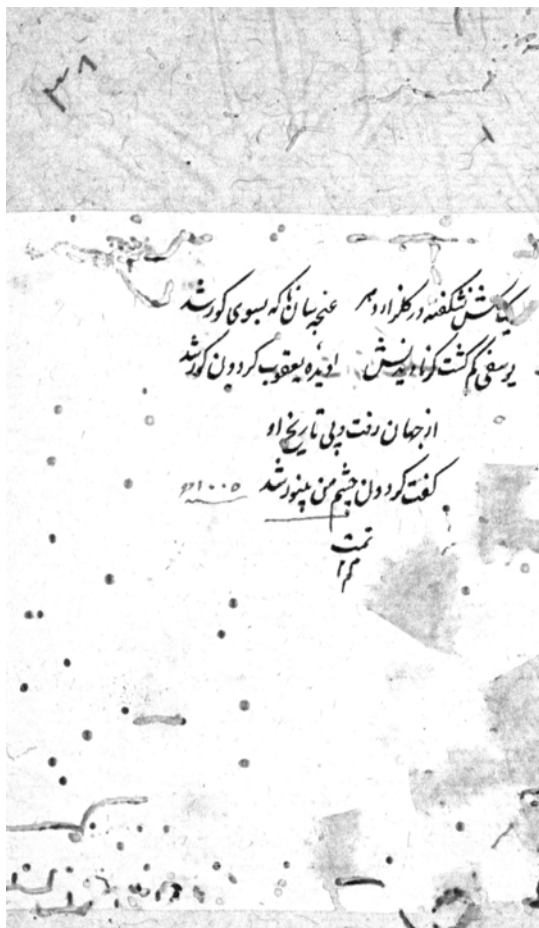 ۳۸
نشکفته در کلزار دهر غنجه سان که بسوی کور شد
یوسفی کم کشت کز نادیدنش دیده یعقوب کردون کور شد
از جهان رفت و پی تاریخ او
کفت کردون چشم من بینور شد ۱۰۰۵
تمت